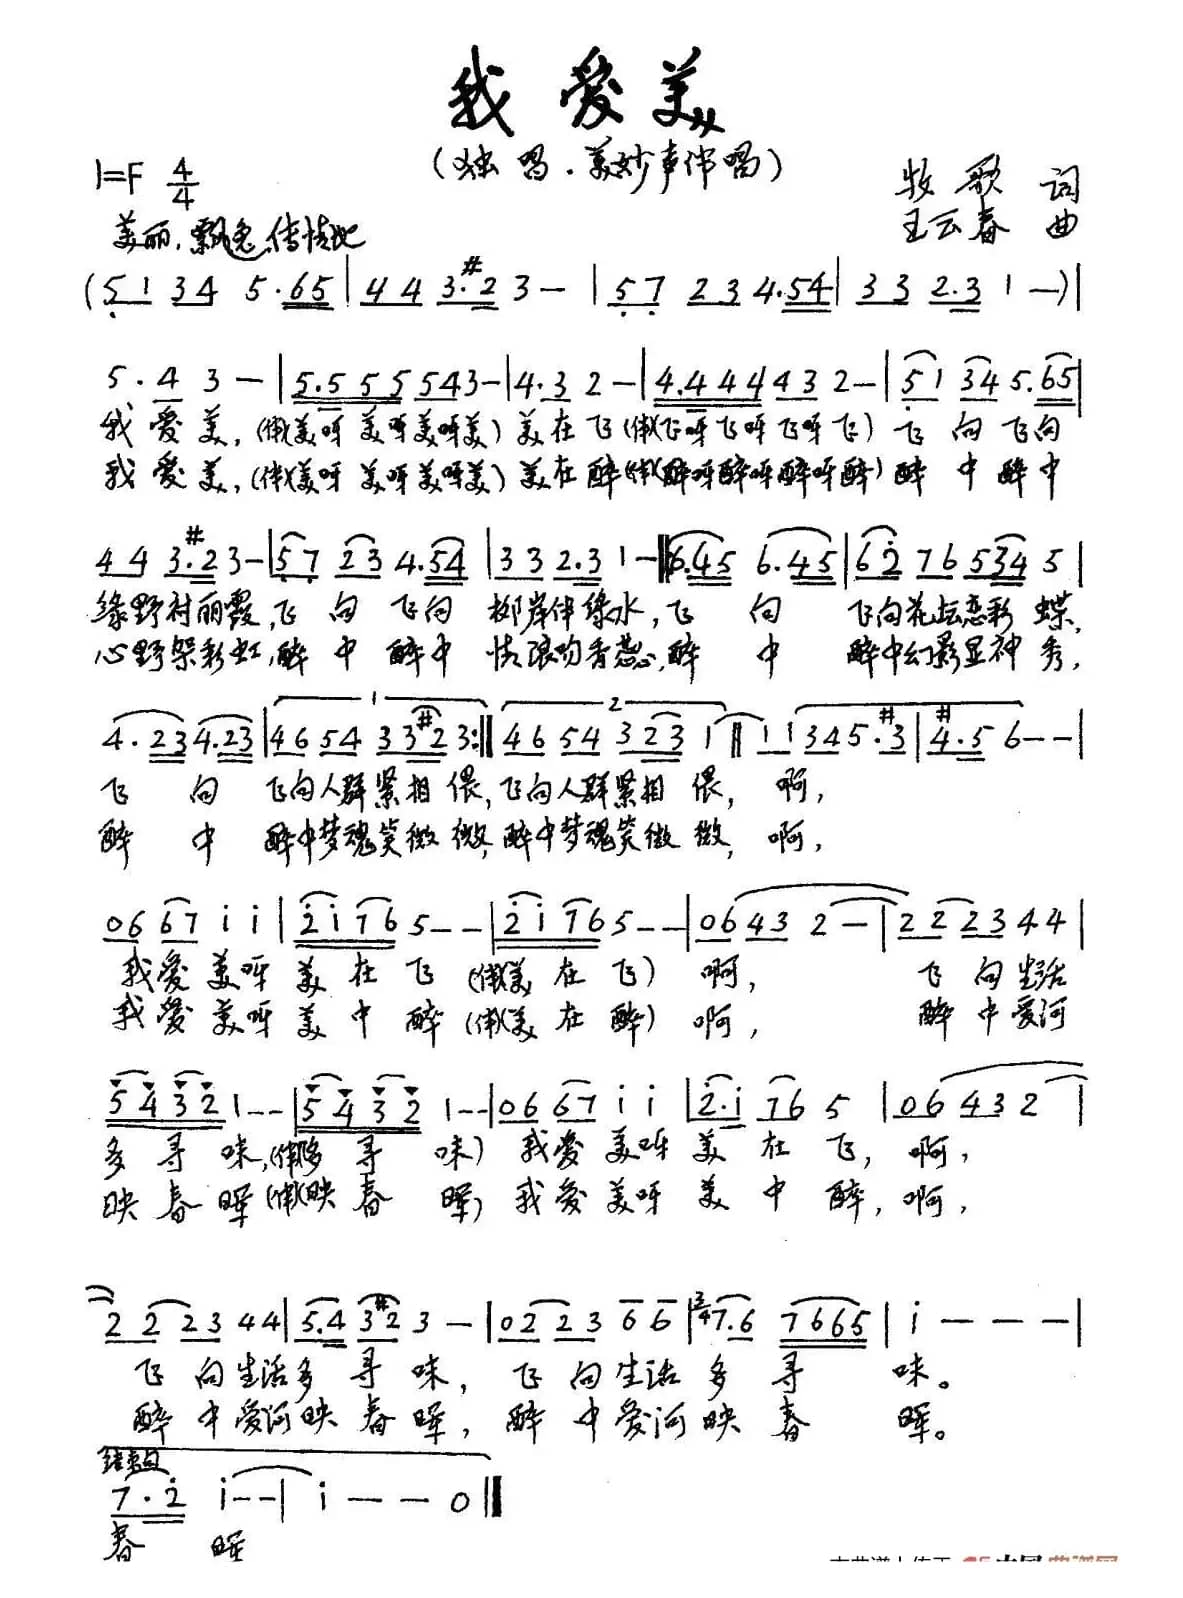 我爱美
(独唱.美妙声伴唱)
1=F 4/4
牧歌 词
王云春 曲
美丽、飘逸、传情地
(51 34 5.65 | 44 3.#23- | 57 234.54 | 33 2.3 1-)|
5.43- | 5.555 543- | 4.32- | 4.444 432- | 51 345.65|
我爱美,(伴(美呀美呀美呀美)美在飞(伴(飞呀飞呀飞呀飞)飞向飞向
我爱美,(伴(美呀美呀美呀美)美在醉(伴(醉呀醉呀醉呀醉)醉中醉中
44 3.#23- | 57 23 4.54 | 33 2.3 1- 6.45 6.45 | 62 76 534 5 |
绿野衬丽霞,飞向飞向柳岸伴绿水,飞向飞向花坛恋彩蝶,
心野架彩虹,醉中醉中情浪吻香蕊,醉中醉中幻影显神秀,
4.23 4.23 | 1 46 54 33#23 :|| 2 46 54 323 1 || 11 345.#3 | #4.5 6-- |
飞向飞向人群紧相偎,飞向人群紧相偎,啊,
醉中醉中梦魂笑微微,醉中梦魂笑微微,啊,
06 67 i i | 2i76 5-- | 2i76 5-- | 06 43 2- | 22 23 44 |
我爱美呀美在飞(伴(美在飞)啊,飞向生活
我爱美呀美中醉(伴(美在醉)啊,醉中爱河
5432 1-- | 5432 1-- | 06 67 i i | 2.i 76 5 | 06 43 2 |
多寻味,(伴(多寻味)我爱美呀美在飞,啊,
映春晖(伴(映春晖)我爱美呀美中醉,啊,
22 23 44 | 5.4 3#2 3- | 02 23 66 | 3/4 7.6 7665 | i --- |
飞向生活多寻味,飞向生活多寻味。
醉中爱河映春晖,醉中爱河映春晖。
结束句
7.2 i-- | i--0 ||
春晖